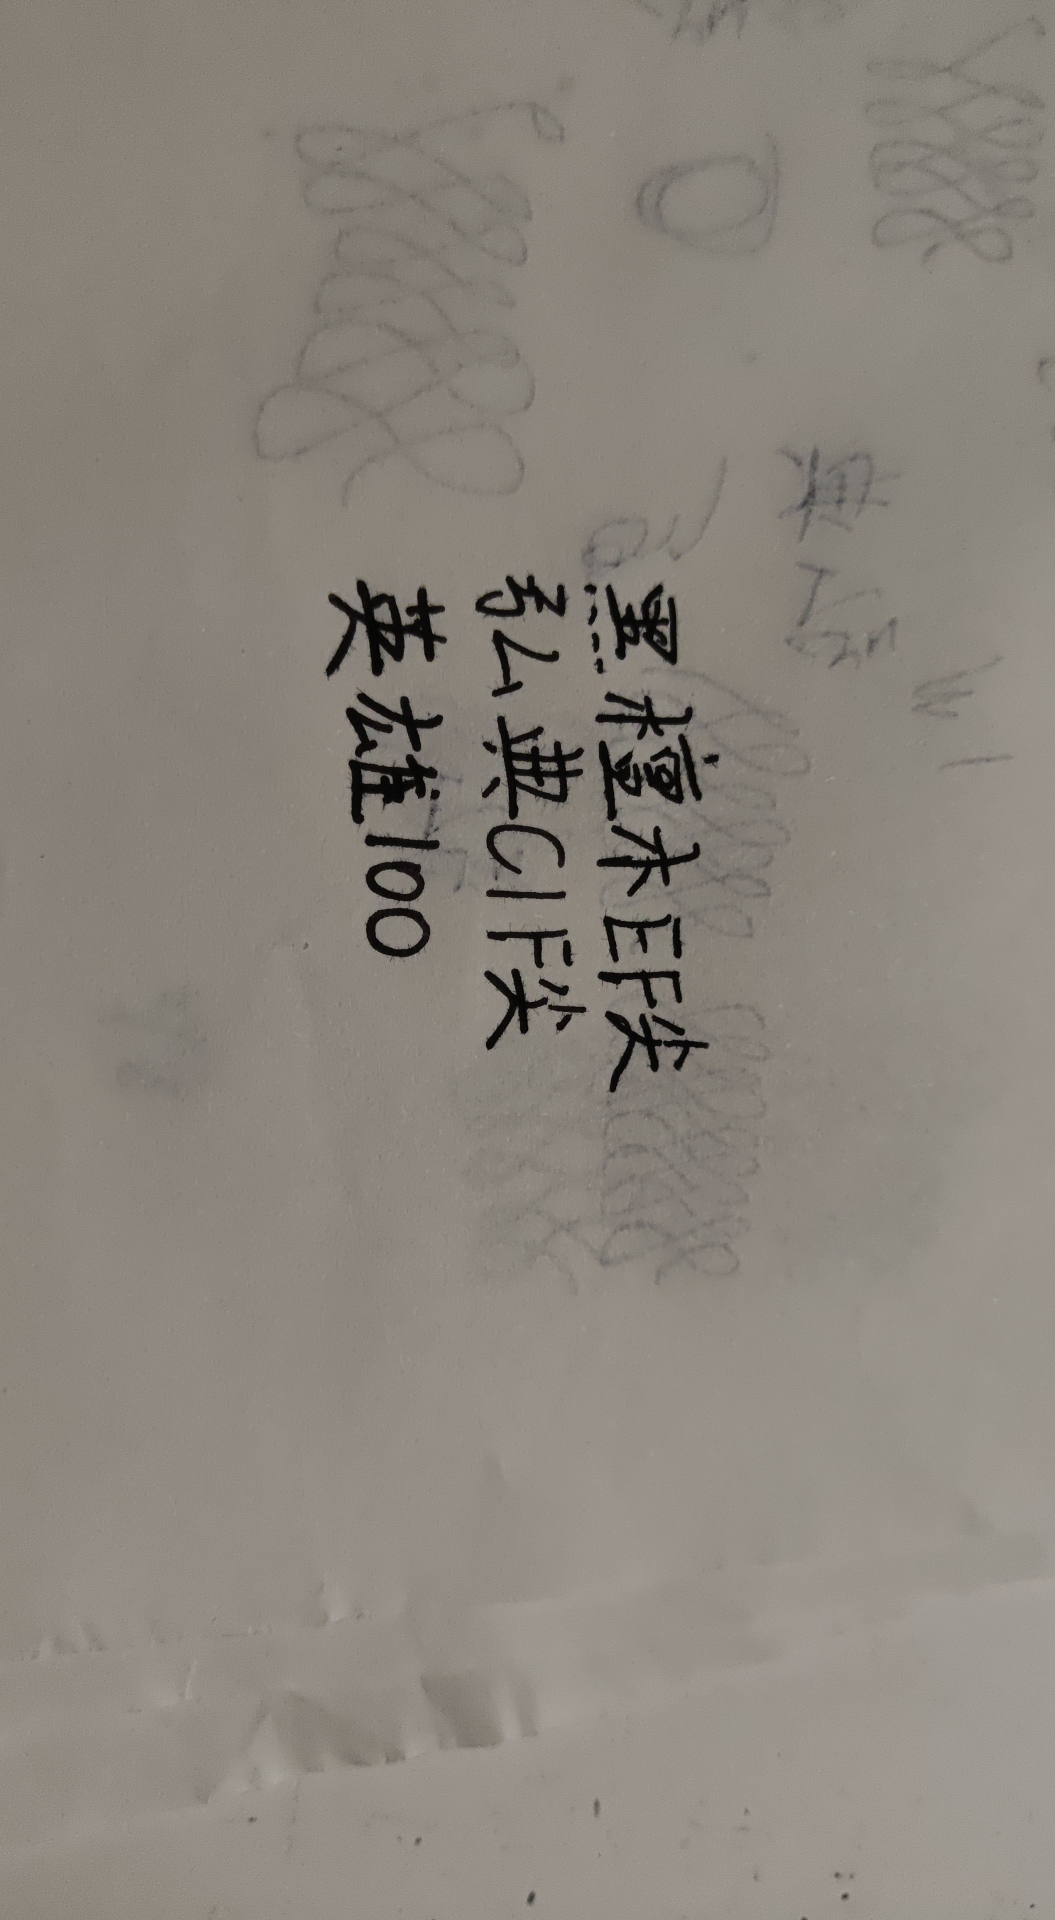 黑檀木EF尖
弘典CIF尖
英雄100